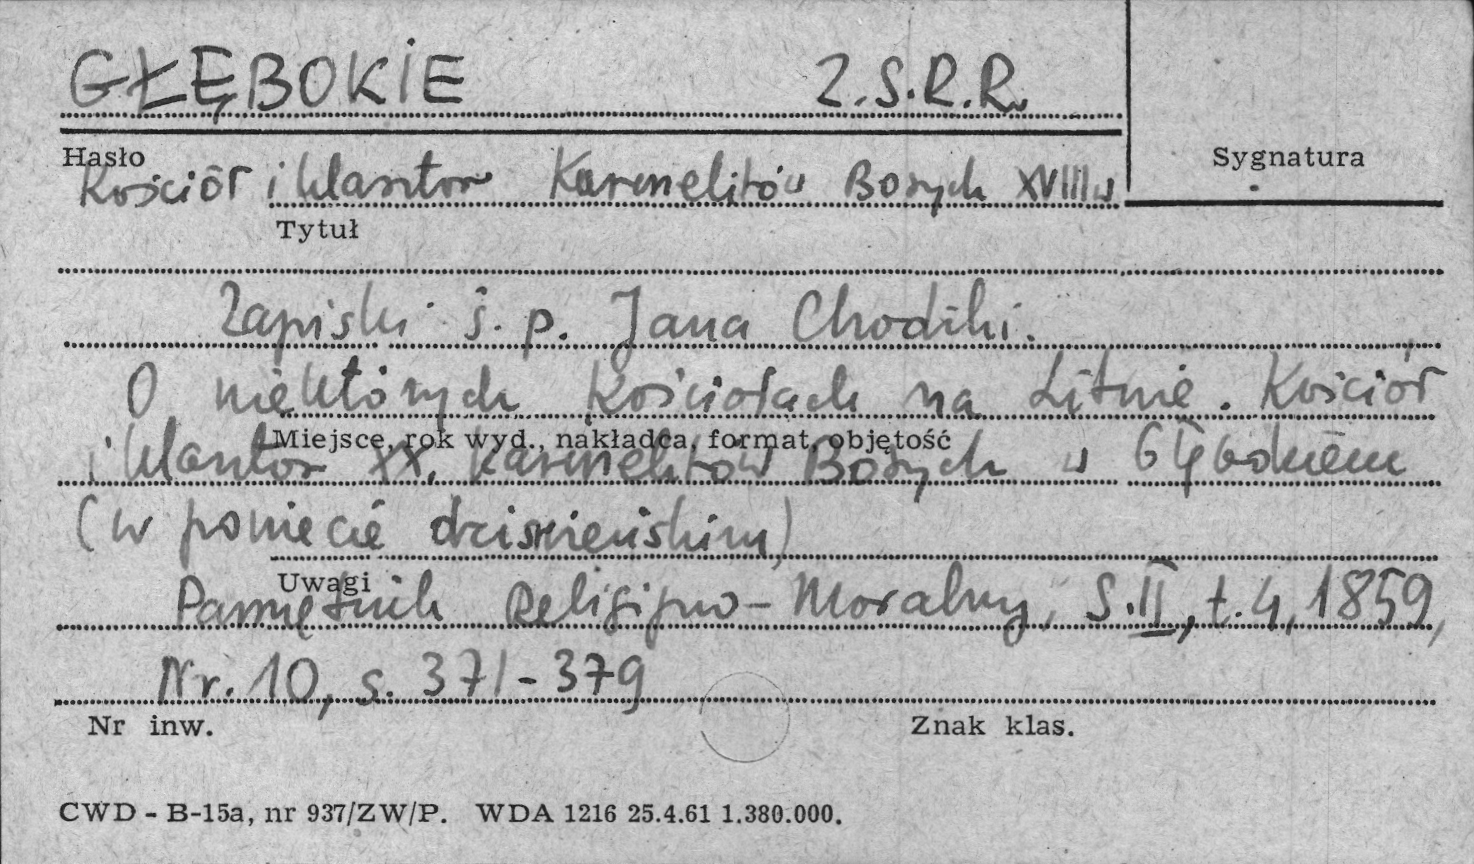 GŁĘBOKIE Z.S.R.R.
Hasło
Sygnatura
Kościół i klasztor Karmelitów Bosych XVIII w
Tytuł
Zapiski ś. p. Jana Chodźki.
O niektórych kościołach na Litwie. Kościół
Miejsce, rok wyd., nakładca, format, objętość
i klasztor XX. Karmelitów Bosych w Głębokiem
(w powiecie dziśnieńskim)
Uwagi
Pamiętnik Religijno-Moralny, S.II, t.4, 1859,
Nr. 10, s. 371-379
Nr inw. Znak klas.
CWD - B-15a, nr 937/ZW/P. WDA 1216 25.4.61 1.380.000.